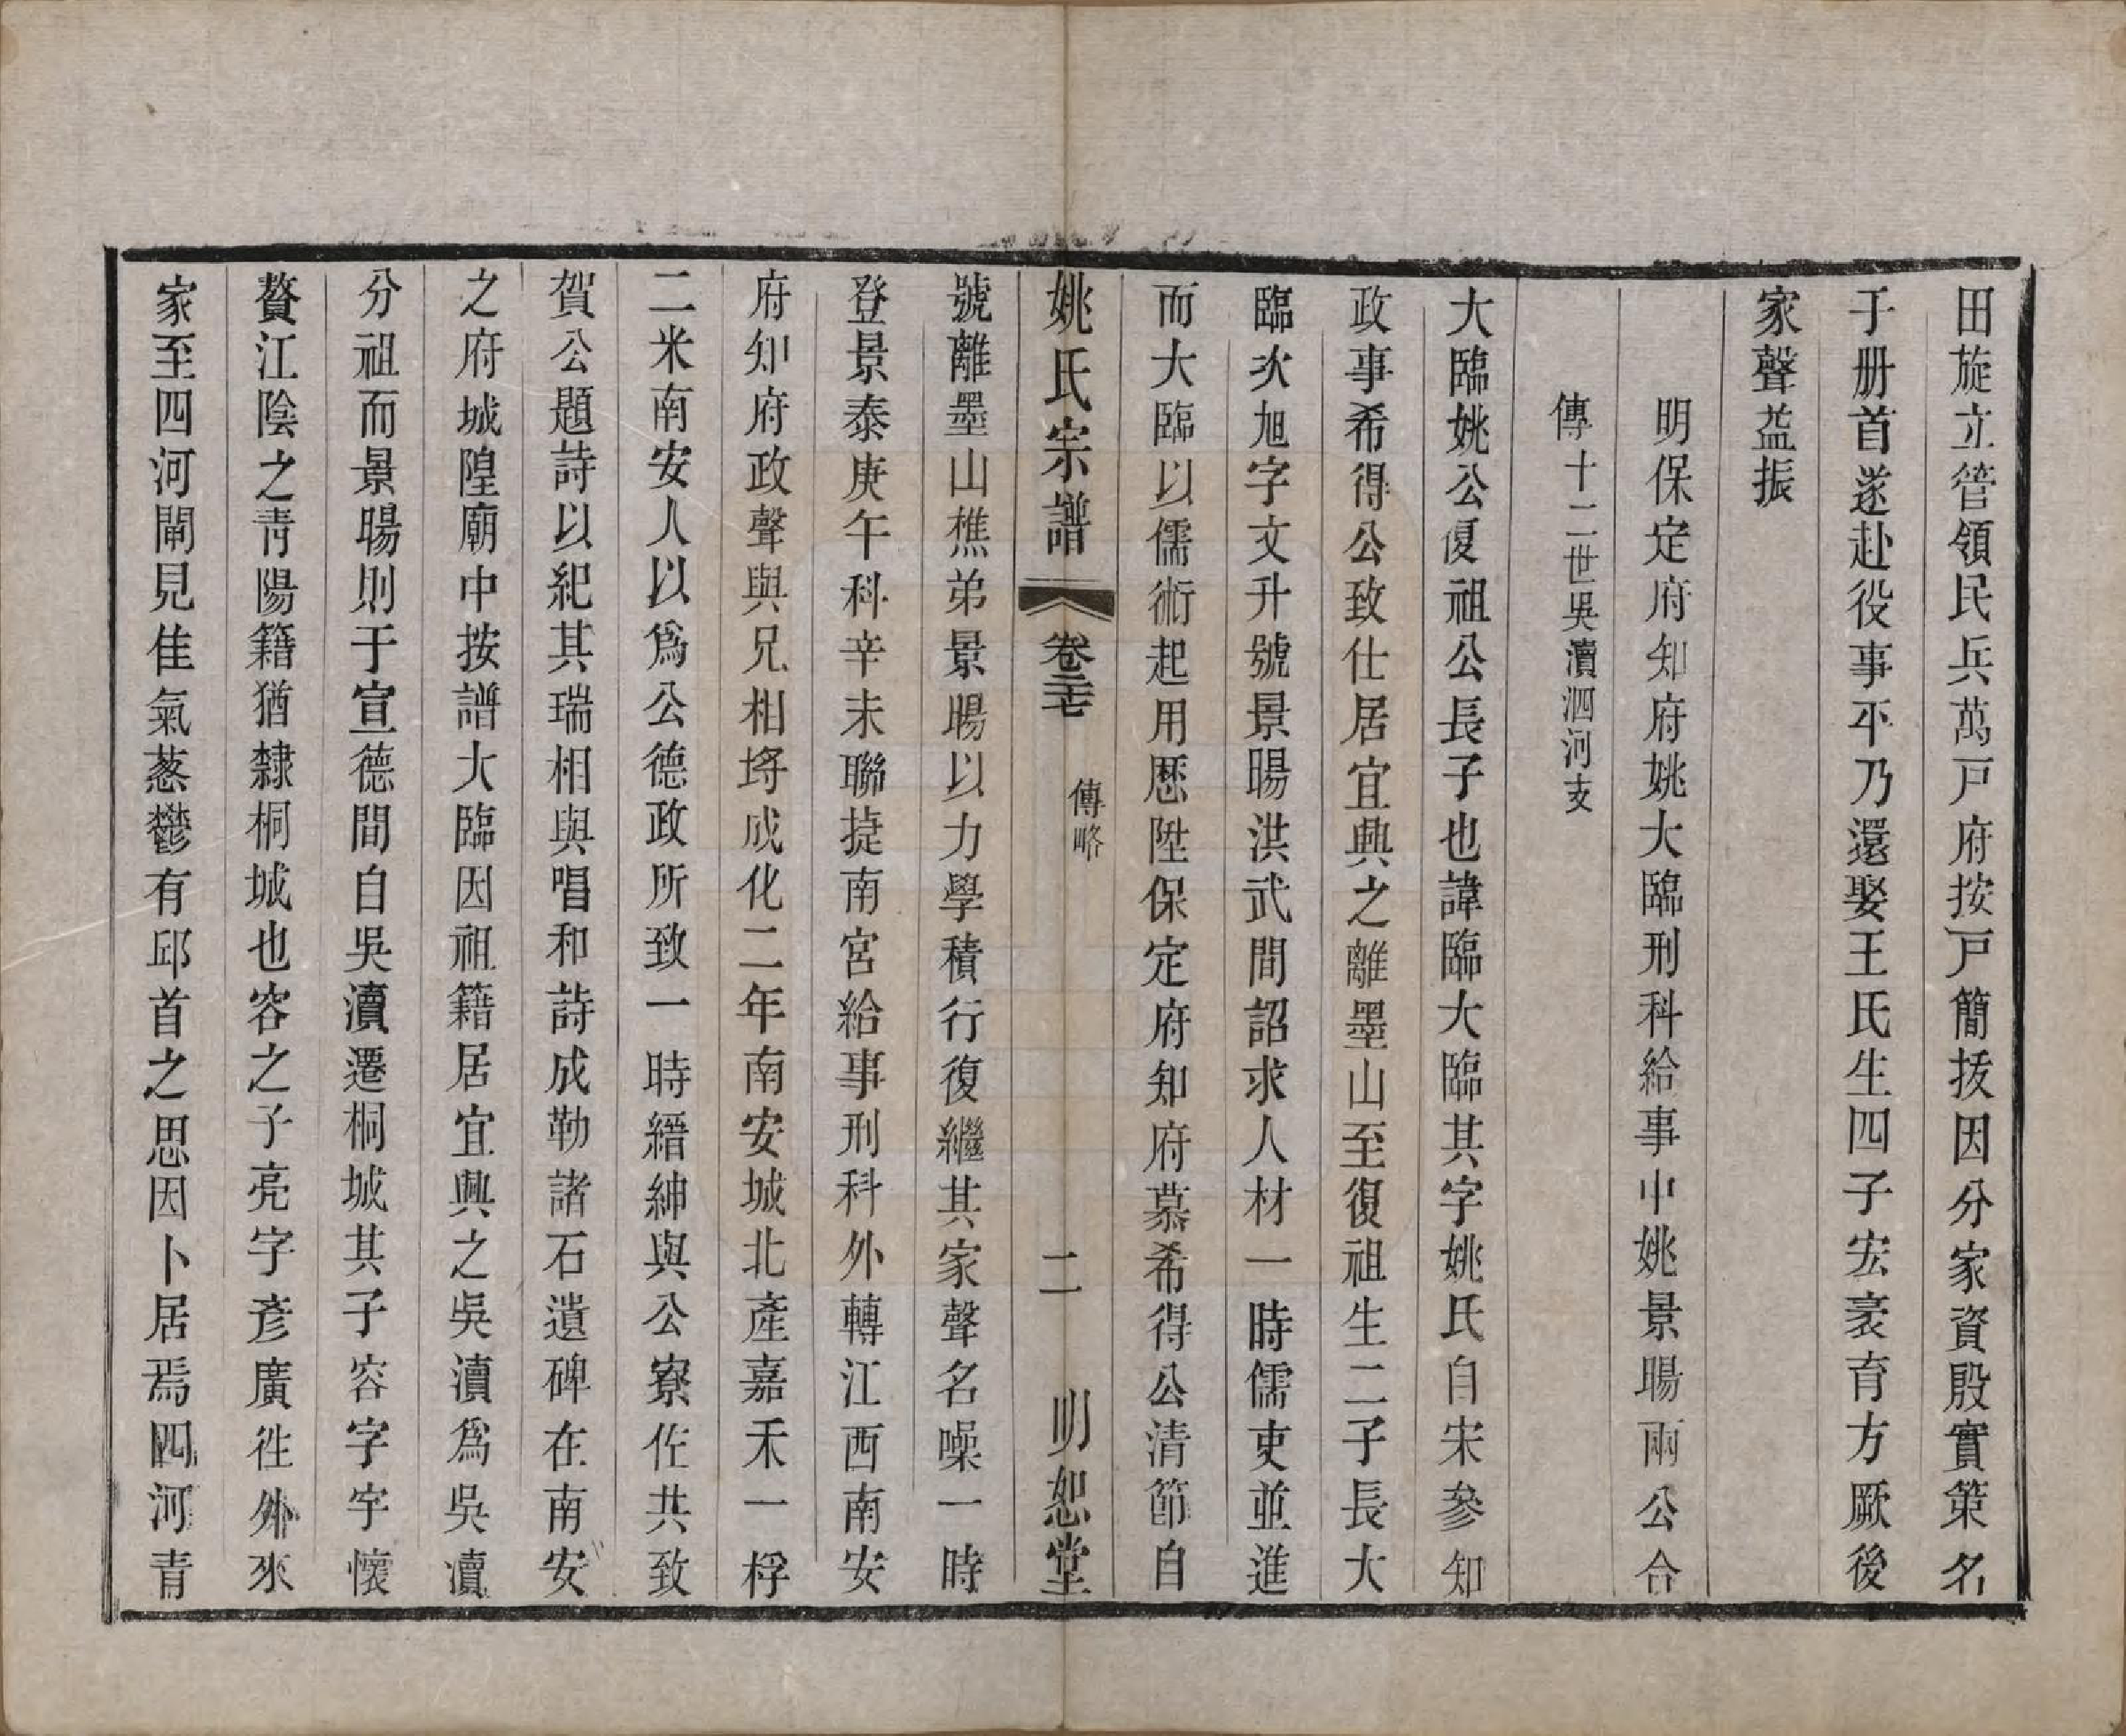 田旋立管領民兵萬戸府按戸簡拔因分家資殷實策名
于册首遂赴役事平乃還娶王氏生四子宏袤育方厥後
家聲益振
明保定府知府姚大臨刑科給事中姚景暘兩公合
傳十二世吳瀆泗河支
大臨姚公復祖公長子也諱臨大臨其字姚氏自宋參知
政事希得公致仕居宜興之離墨山至復祖生二子長大
臨次旭字文升號景暘洪武間詔求人材一時儒吏並進
而大臨以儒術起用歷陞保定府知府慕希得公清節自
姚氏宗譜 卷三七 傳略 二 明恕堂
號離墨山樵弟景暘以力學積行復繼其家聲名噪一時
登景泰庚午科辛未聯捷南宮給事刑科外轉江西南安
府知府政聲與兄相埒成化二年南安城北產嘉禾一桴
二米南安人以爲公德政所致一時縉紳與公寮佐共致
賀公題詩以紀其瑞相與唱和詩成勒諸石遺碑在南安
之府城隍廟中按譜大臨因祖籍居宜興之吳瀆爲吳瀆
分祖而景暘則于宣德間自吳瀆遷桐城其子容字宇懷
贅江陰之靑陽籍猶隸桐城也容之子亮字彥廣徃外來
家至四河閘見佳氣葱鬱有邱首之思因卜居焉四河青